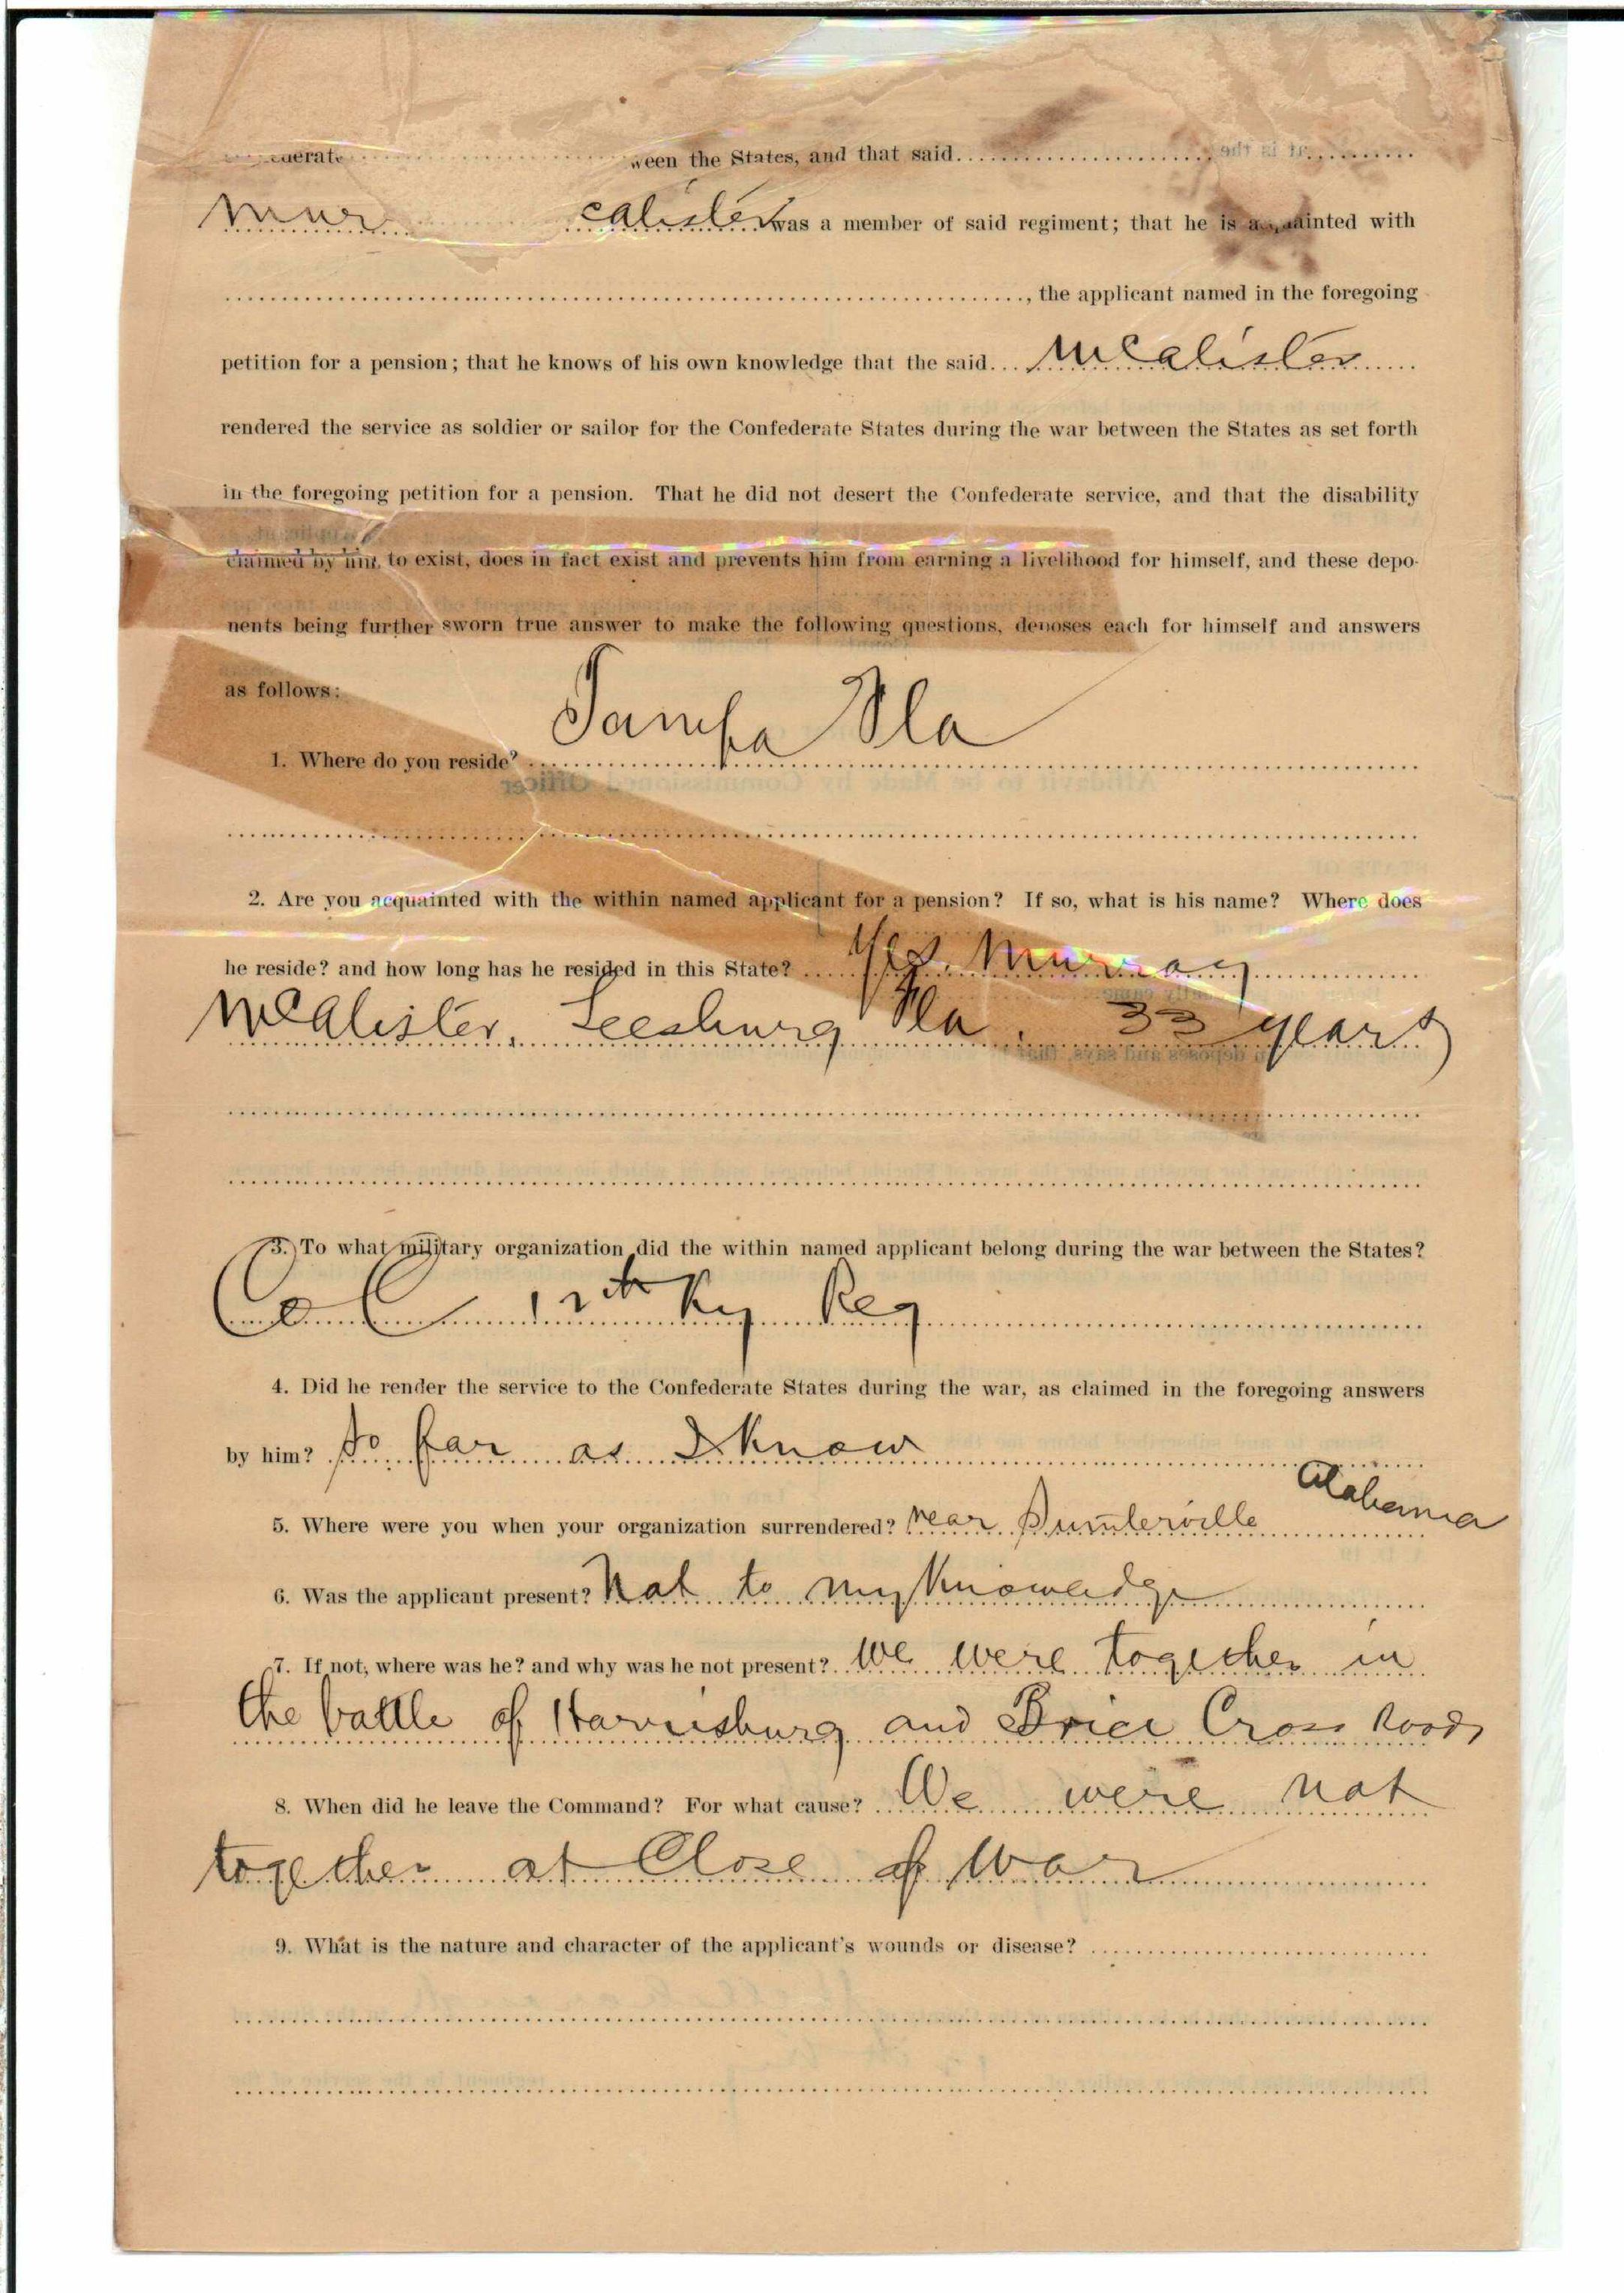 ween the States, and that said
Mur calister was a member of said regiment; that he is acquainted with
, the applicant named in the foregoing
petition for a pension; that he knows of his own knowledge that the said McAlister
rendered the service as soldier or sailor for the Confederate States during the war between the States as set forth
in the foregoing petition for a pension. That he did not desert the Confederate service, and that the disability
claimed by him, to exist, does in fact exist and prevents him from earning a livelihood for himself, and these depo-
nents being further sworn true answer to make the following questions, deposes each for himself and answers
as follows:
1. Where do you reside? Tampa Fla
2. Are you acquainted with the within named applicant for a pension? If so, what is his name? Where does
he reside? and how long has he resided in this State? Yes. Murray
McAlister, Leesburg Fla. 33 years
3. To what military organization did the within named applicant belong during the war between the States?
Co C 12th Ky Reg
4. Did he render the service to the Confederate States during the war, as claimed in the foregoing answers
by him? So far as I know
5. Where were you when your organization surrendered? near Sumterville Alabama
6. Was the applicant present? Not to my Knowledge
7. If not, where was he? and why was he not present? We were together in
the battle of Harrisburg and Brice Cross Roads
8. When did he leave the Command? For what cause? We were not
together at Close of War
9. What is the nature and character of the applicant's wounds or disease?